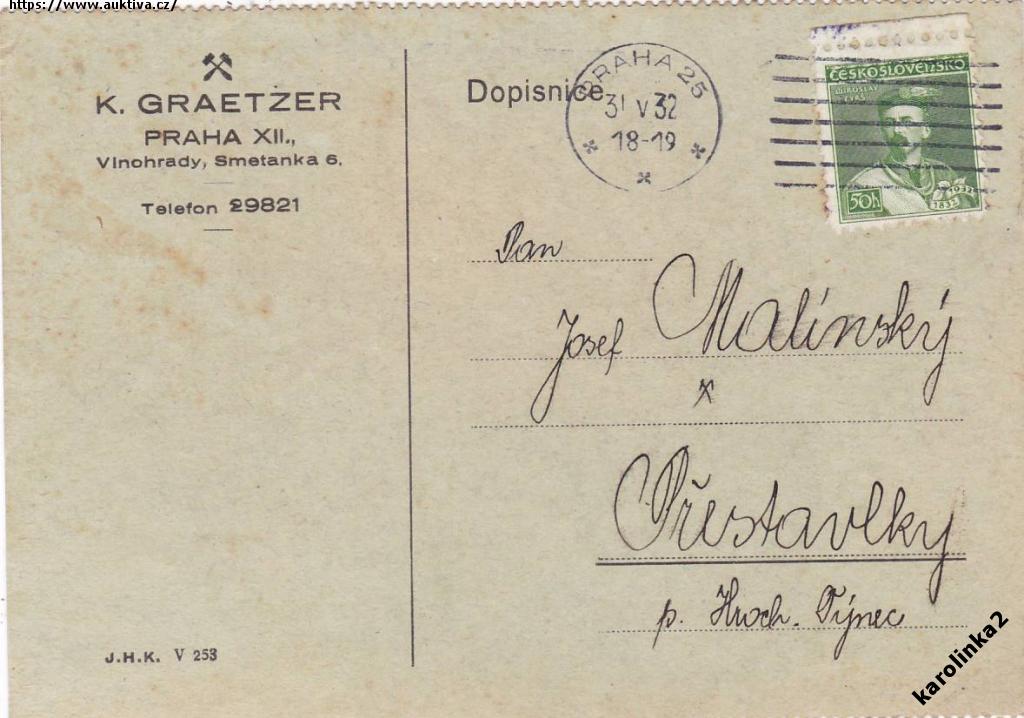 https://www.auktiva.cz/
K. GRAETZER
PRAHA XII.,
Vinohrady, Smetanka 6.
Telefon 29821
J.H.K. V 253
Dopisnice
PRAHA 25
31 V 32
18-19
ČESKOSLOVENSKO
MIROSLAV
TYRŠ
50h
1832
1932
Pan
Josef Malínský
Přestavlky
p. Hroch. Týnec
karolinka2